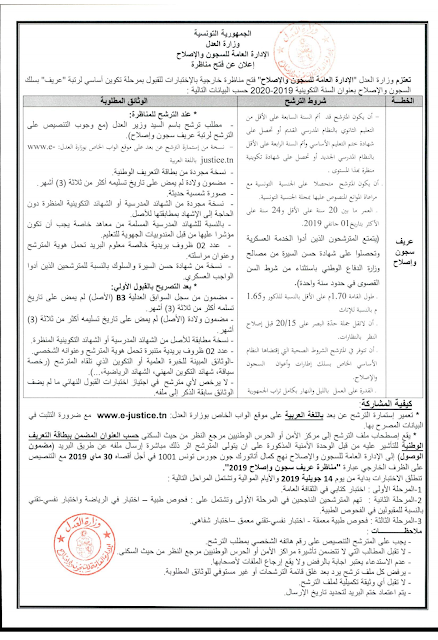 الجمهورية التونسية
وزارة العدل
الإدارة العامة للسجون والإصلاح
إعلان عن فتح مناظرة
تعتزم وزارة العدل "الإدارة العامة للسجون والإصلاح" فتح مناظرة خارجية بالإختبارات للقبول بمرحلة تكوين أساسي لرتبة "عريف" بسلك
السجون والإصلاح بعنوان السنة التكوينية 2019-2020 حسب البيانات التالية :
الخطة
شروط الترشح
الوثائق المطلوبة
عريف
سجون
وإصلاح
- أن يكون المترشح قد أتم السنة السابعة على الأقل من
التعليم الثانوي بالنظام المدرسي القديم أو أحصل على
شهادة ختم التعليم الأساسي وأتم السنة الرابعة على الأقل
بالنظام المدرسي الجديد، أو تحصل على شهادة تكوينية
منظرة بهذا المستوى.
- أن يكون المترشح متحصلا على الجنسية التونسية مع
مراعاة الموانع المنصوص عليها بمجلة الجنسية التونسية.
- العمر ما بين 20 سنة على الأقل و24 سنة على
الأكثر بتاريخ 01 جانفي 2019.
(يتمتع المترشحون الذين أدوا الخدمة العسكرية
وتحصلوا على شهادة حسن السيرة من مصالح
وزارة الدفاع الوطني باستثناء من شرط السن
القصوى في حدود سنة واحدة).
- طول القامة 1.70م على الأقل بالنسبة للذكور و1.65
م بالنسبة للإناث.
- أن لا تقل جملة حدة البصر على 20/15 قبل إصلاح
النظر بالنظارات.
- أن تتوفر في المترشح الشروط الصحية التي يقتضيها النظام
الأساسي الخاص بسلك إطارات وأعوان السجون
والإصلاح.
- القدرة على العمل بالليل والنهار بكامل تراب الجمهورية
* عند الترشح للمناظرة:
- مطلب ترشح باسم السيد وزير العدل (مع وجوب التنصيص على
الترشح لرتبة عريف سجون وإصلاح).
- نسخة من إستمارة الترشح عن بعد على موقع الواب الخاص بوزارة العدل: www.e-
justice.tn باللغة العربية
- نسخة مجردة من بطاقة التعريف الوطنية
- مضمون ولادة لم يمض على تاريخ تسليمه أكثر من ثلاثة (3) أشهر.
- صورة شمسية حديثة.
- نسخة مجردة من الشهادة المدرسية أو الشهادة التكوينية المنظرة دون
الحاجة إلى الإشهاد بمطابقتها للأصل.
- بالنسبة للشهادة المدرسية المسلمة من معاهد خاصة يجب أن تكون
مؤشرا عليها من قبل المندوبيات الجهوية للتعليم.
- عدد 02 ظروف بريدية خالصة معلوم البريد تحمل هوية المترشح
وعنوان مراسلته.
- نسخة من شهادة حسن السيرة والسلوك بالنسبة للمترشحين الذين أدوا
الواجب العسكري.
* بعد التصريح بالقبول الأولي:
- مضمون من سجل السوابق العدلية B3 (الأصل) لم يمض على تاريخ
تسليمه أكثر من ثلاثة (3) أشهر.
- مضمون ولادة (الأصل) لم يمض على تاريخ تسليمه أكثر من ثلاثة (3)
أشهر.
- نسخة مطابقة للأصل من الشهادة المدرسية أو الشهائد التكوينية المنظرة.
- عدد 02 ظروف بريدية متنبرة تحمل هوية المترشح وعنوانه الشخصي.
- الوثائق المبينة للخبرة العلمية أو التكوين الذي تلقاه المترشح (رخصة
سياقة، شهادة التكوين المهني، الشهائد الرياضية،...).
- لا يرخص لأي مترشح في اجتياز اختبارات القبول النهائي ما لم يضف
الوثائق سابقة الذكر إلى ملفه.
كيفية المشاركة:
* تعمير إستمارة الترشح عن بعد باللغة العربية على موقع الواب الخاص بوزارة العدل: www.e-justice.tn مع ضرورة التثبت في
البيانات المصرح بها.
* يقع اصطحاب ملف الترشح إلى مركز الأمن أو الحرس الوطنيين مرجع النظر من حيث السكنى حسب العنوان المضمن ببطاقة التعريف
الوطنية للتأشير عليه من قبل الوحدة الأمنية المذكورة على أن يتولى المترشح اثر ذلك مباشرة إرسال ملفه عن طريق البريد (مضمون
الوصول) إلى الإدارة العامة للسجون والإصلاح نهج كمال أتاتورك جون جورس تونس 1001 في أجل أقصاه 30 ماي 2019 مع التنصيص
على الظرف الخارجي عبارة "مناظرة عريف سجون وإصلاح 2019".
تنطلق الاختبارات بداية من يوم 14 جويلية 2019 والأيام الموالية وتشتمل المراحل التالية :
1-المرحلة الأولى : اختبار كتابي في الثقافة العامة.
2-المرحلة الثانية : تهم المترشحين الناجحين في المرحلة الأولى وتشتمل على : فحوص طبية – اختبار في الرياضة واختبار نفسي-تقني
بالنسبة للمقبولين في الفحوص الطبية
3-المرحلة الثالثة : فحوص طبية معمقة – اختبار نفسي-تقني معمق – اختبار شفاهي.
ملاحظات :
- يجب على المترشح التنصيص على رقم هاتفه الشخصي بمطلب الترشح.
- لا تقبل المطالب التي لا تتضمن تأشيرة مراكز الأمن أو الحرس الوطنيين مرجع النظر من حيث السكنى.
- عدم الاستدعاء يعتبر إجابة بالرفض ولا يقع إرجاع الملفات لأصحابها.
- يرفض كل ملف ترشح يرد بعد غلق قائمة الترشحات أو غير مستوفي للوثائق المطلوبة.
- لا تقبل أي وثيقة تكميلية لملف الترشح.
- يتم اعتماد ختم البريد لتحديد تاريخ الإرسال.